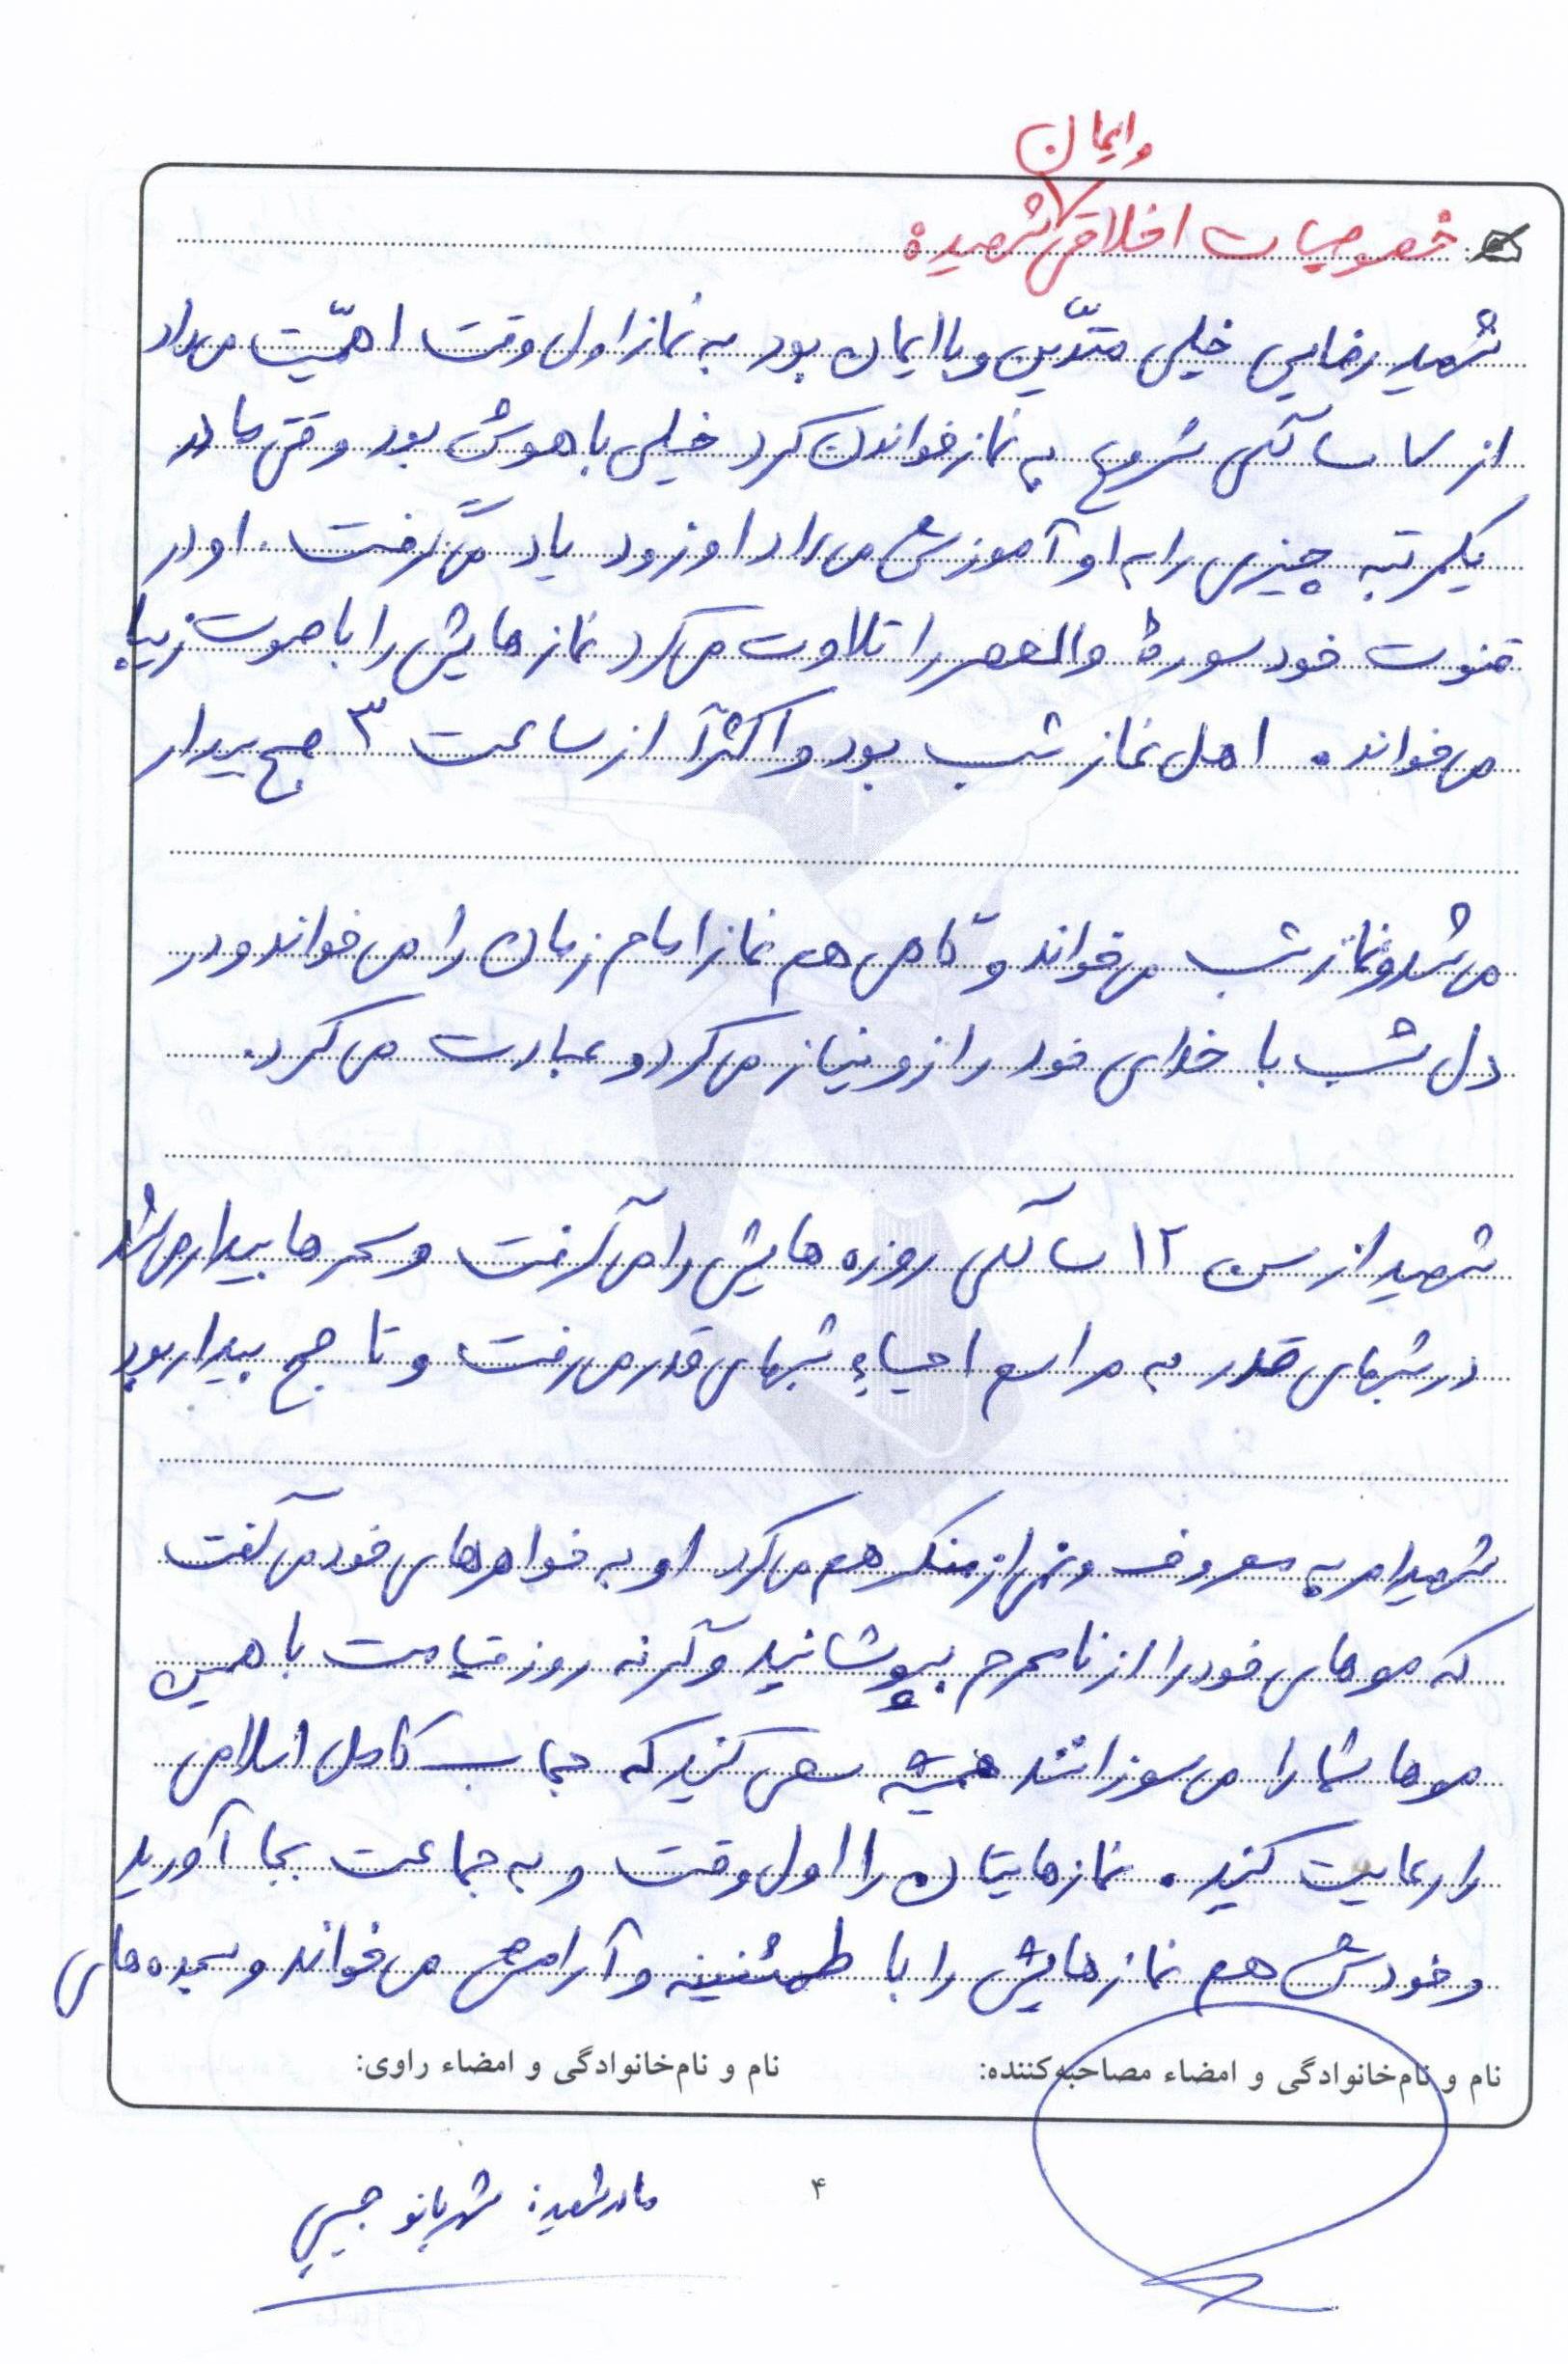 و ایمان
خصوصیات اخلاقی شهید:
شهید رضایی خیلی متدّین و با ایمان بود به نماز اول وقت اهمّیت می‌داد
از ۷ سالگی شروع به نماز خواندن کرد خیلی با هوش بود وقتی مادر
یکمرتبه چیزی را به او آموزش می‌داد او زود یاد می‌گرفت. او در
قنوت خود سورهٔ والعصر را تلاوت می‌کرد نمازهایش را با صوت زیبا
می‌خواند. اهل نماز شب بود و اکثراً از ساعت ۳ صبح بیدار
می‌شد و نماز شب می‌خواند و گاهی هم نماز امام زمان را می‌خواند و در
دل شب با خدای خود راز و نیاز می‌کرد و عبادت می‌کرد.
شهید از سن ۱۲ سالگی روزه هایش را می‌گرفت و سحرها بیدار می‌شد
در شبهای قدر به مراسم احیاء شبهای قدر می‌رفت و تا صبح بیدار بود
شهید امر به معروف و نهی از منکر هم می‌کرد او به خواهرهای خود می‌گفت
که موهای خود را از نامحرم بپوشانید وگرنه روز قیامت با همین
موها شما را می‌سوزانند همیشه سعی کنید که حجاب کامل اسلامی
را رعایت کنید. نمازهایتان را اول وقت و به جماعت بجا آورید
و خودش هم نمازهایش را با طمئنینه و آرامش می‌خواند و سجده‌های
نام و نام‌خانوادگی و امضاء مصاحبه‌کننده: نام و نام‌خانوادگی و امضاء راوی:
مادر شهید: شهربانو حبیبی
۴